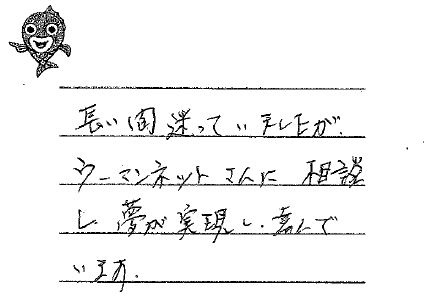 長い間迷っていましたが、
ウーマンネットさんに 相談
し、夢が実現し、喜んで
います.